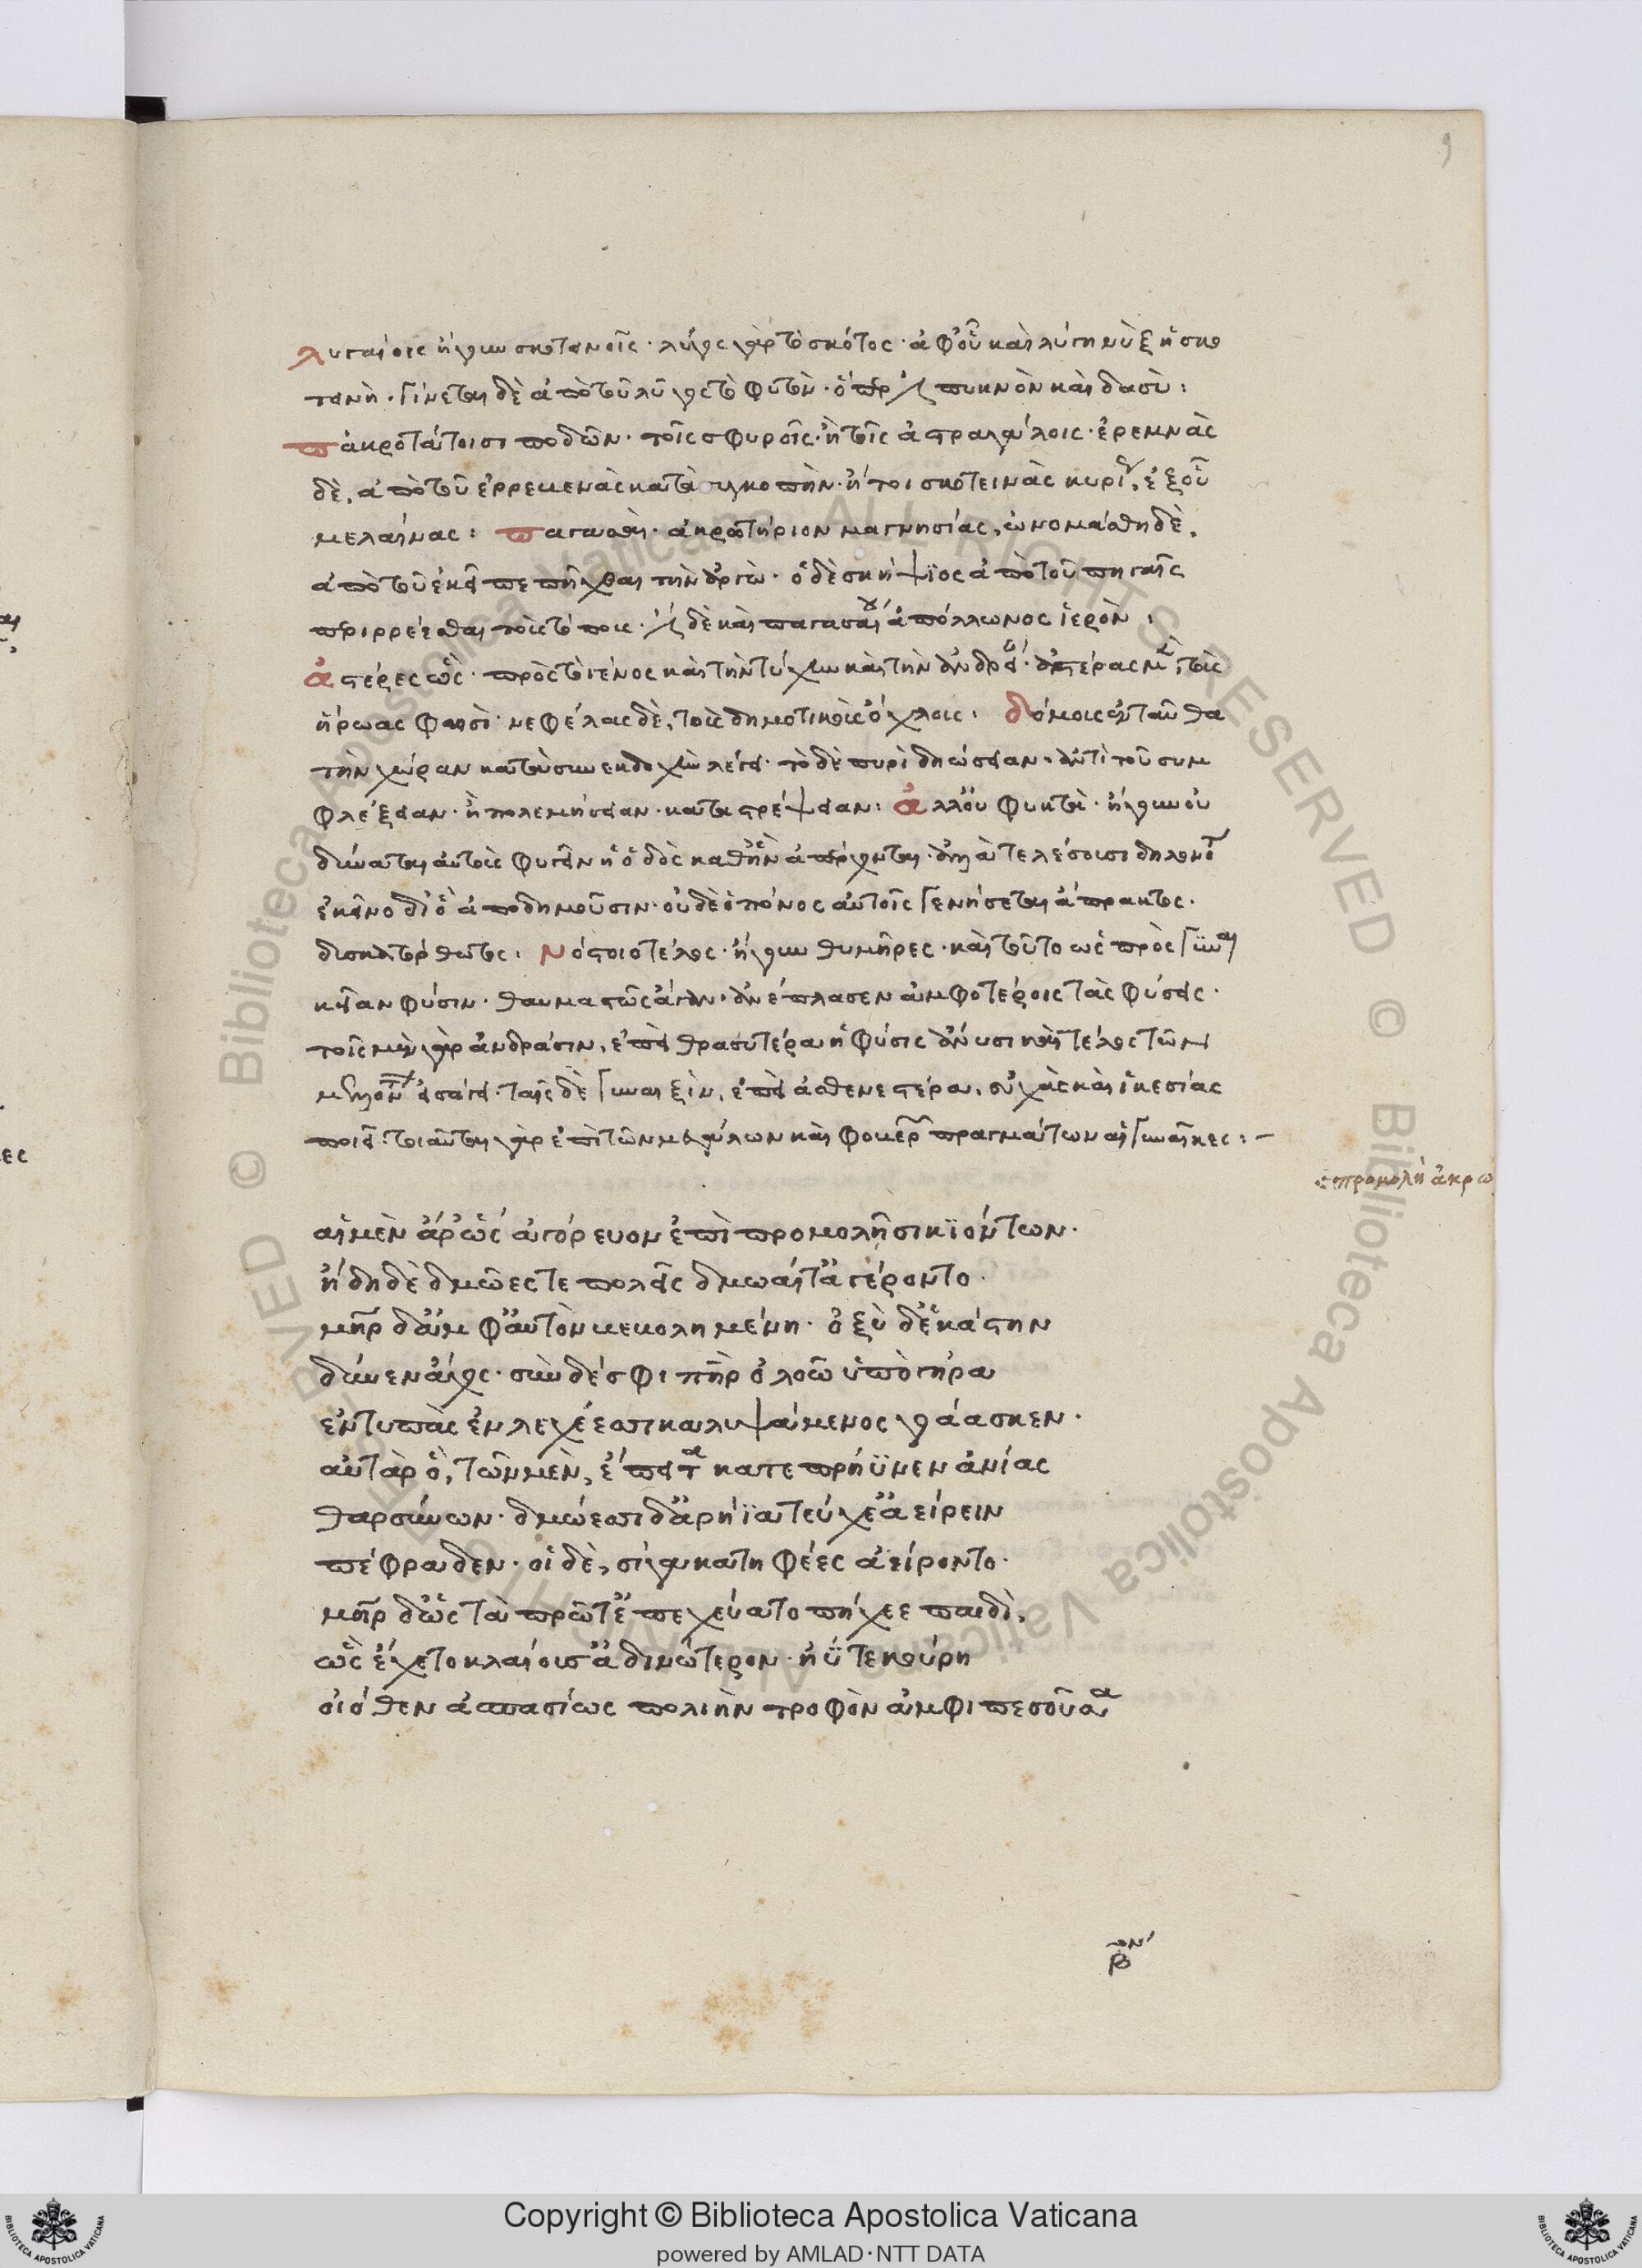 λυγαίοις ἤγουν σκοτεινοῖς· λύγος γὰρ τὸ σκότος· ἀφ' οὗ καὶ λύγη νὺξ ἡ σκο
τεινή· γίνεται δὲ ἀπὸ τοῦ λύγος τὸ φυτὸν· ὅπερ ἐστὶ πυκνὸν καὶ δασὺ:
ἀκροτάτοισι ποδῶν· τοῖς σφυροῖς· ἢ τοῖς ἀστραγάλοις· ἐρεμνὰς
δὲ, ἀπὸ τοῦ ἐρρεμενὰς κατὰ συγκοπήν· ἤτοι σκοτεινὰς κυρίως, ἐξ οὗ
μελαίνας: παγασαὶ· ἀκρωτήριον μαγνησίας, ὠνομάσθη δὲ,
ἀπὸ τοῦ ἐκεῖ πεπῆχθαι τὴν ἀργώ· ὁ δὲ σκήψιος ἀπὸ τοῦ πηγαῖς
περιρρεῖσθαι τοὺς τόπους· ἔστι δὲ καὶ παγασαίου ἀπόλλωνος ἱερὸν:
ἀστέρες ὣς· πρὸς τὸ γένος καὶ τὴν τύχην καὶ τὴν ἀνδρείαν· ἀστέρας μὲν τοὺς
ἥρωας φησὶ· νεφέλας δὲ, τοὺς δημοτικοὺς ὄχλους: δόμους ἐνταῦθα
τὴν χώραν κατὰ συνεκδοχὴν λέγει· τὸ δὲ πυρὶ δηώσειαν· ἀντὶ τοῦ συμ
φλέξειαν· ἢ πολεμήσειαν· καταστρέψειαν: ἀλλ' οὐ φυκτὰ· ἤγουν οὐ
δύναται αὐτοὺς φυγεῖν ἡ ὁδὸς καθ' ἣν ἀπέρχονται· ἀλλὰ τελέσουσι δηλονότι
ἐκεῖνο δι' ὃ ἀποδημοῦσιν· οὐδὲ ὁ πόνος αὐτοῖς γενήσεται ἄπρακτος·
δισκατόρθωτος: νόστοιο τέλος· ἤγουν θυμῆρες· καὶ τοῦτο ὡς πρὸς γυναι
κείαν φύσιν· θαυμαστῶς ἄγαν· ἀνέπλασεν ἀμφοτέροις τὰς φύσεις·
τοῖς μὲν γὰρ ἀνδράσιν, ἐπεὶ θρασυτέρα ἡ φύσις ἀνύσι καὶ τέλος τῶν
μελλόντων εἰσάγει· ταῖς δὲ γυναιξὶν, ἐπεὶ ἀσθενεστέρα, εὐχὰς καὶ ἱκεσίας
ποιεῖ· τοιαῦται γὰρ ἐπὶ τῶν μεγάλων καὶ φοβερῶν πραγμάτων αἱ γυναῖκες:–
προμολὴ ἀκρω
αἱ μὲν ἄρ' ὣς ἀγόρευον ἐπὶ προμολῇσι κιόντων·
ἤδη δὲ δμῶές τε πολεῖς δμωαί τ' ἀγέροντο·
μήτηρ δ' ἀμφ' αὐτὸν κεκολημένη· ὀξὺ δ' ἑκάστην
δύνεν ἄχος· σὺν δέ σφι πατὴρ ὀλοῶ ὑπὸ γήρα
ἐντυπὰς ἐν λεχέεσσι καλυψάμενος γοάασκεν·
αὐτὰρ ὃ, τῶν μὲν, ἔπειτα κατεπρήϋνεν ἀνίας
θαρσύνων· δμώεσσι δ' ἀρήϊα τεύχε' ἀείρειν
πέφραδεν· οἱ δὲ, σίγα κατηφέες ἀείροντο·
μήτηρ δ' ὡς τὰ πρῶτ' ἐπεχεύατο πήχεε παιδὶ,
ὣς ἔχετο κλαίουσ' ἀδινώτερον· ἠΰτε κούρη
οἰόθεν ἀσπασίως πολιὴν τροφὸν ἀμφιπεσοῦσα
Copyright © Biblioteca Apostolica Vaticana
powered by AMLAD·NTT DATA